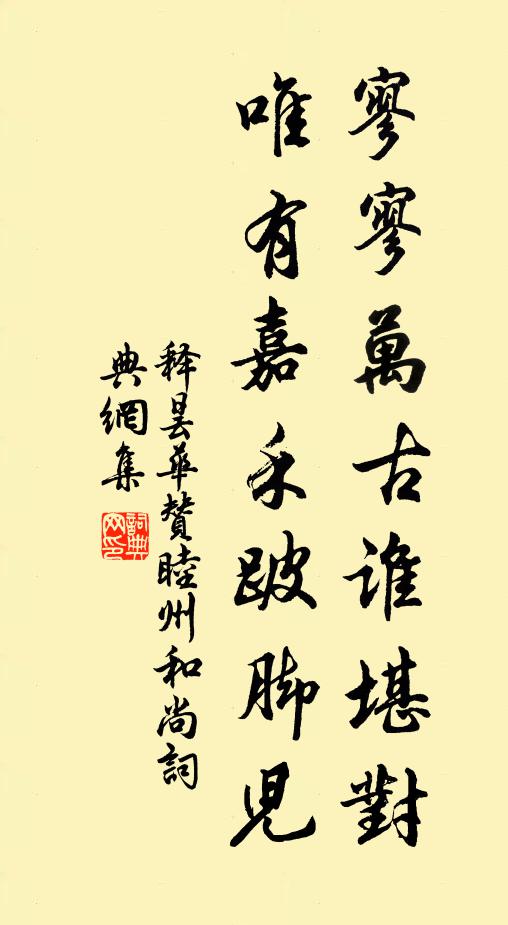 寥寥萬古谁堪對
唯有嘉禾跛脚兒
释曇華贊睦州和尚詞
典網集
詞典網印